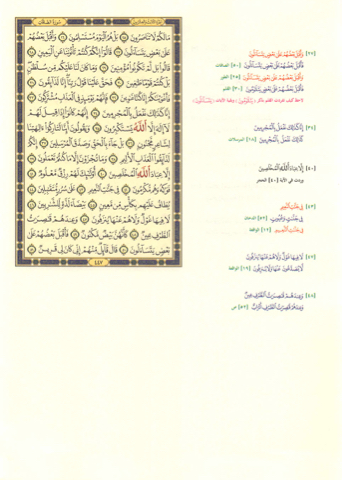 سورة الصافات
مَا لَكُمْ لَا تَنَاصَرُونَ ٢٥ بَلْ هُمُ الْيَوْمَ مُسْتَسْلِمُونَ ٢٦ وَأَقْبَلَ بَعْضُهُمْ
عَلَىٰ بَعْضٍ يَتَسَاءَلُونَ ٢٧ قَالُوا إِنَّكُمْ كُنتُمْ تَأْتُونَنَا عَنِ الْيَمِينِ ٢٨
قَالُوا بَل لَّمْ تَكُونُوا مُؤْمِنِينَ ٢٩ وَمَا كَانَ لَنَا عَلَيْكُم مِّن سُلْطَٰنٍ
بَلْ كُنتُمْ قَوْمًا طَٰغِينَ ٣٠ فَحَقَّ عَلَيْنَا قَوْلُ رَبِّنَا إِنَّا لَذَائِقُونَ ٣١
فَأَغْوَيْنَٰكُمْ إِنَّا كُنَّا غَٰوِينَ ٣٢ فَإِنَّهُمْ يَوْمَئِذٍ فِي الْعَذَابِ مُشْتَرِكُونَ ٣٣
إِنَّا كَذَٰلِكَ نَفْعَلُ بِالْمُجْرِمِينَ ٣٤ إِنَّهُمْ كَانُوا إِذَا قِيلَ لَهُمْ
لَا إِلَٰهَ إِلَّا اللَّهُ يَسْتَكْبِرُونَ ٣٥ وَيَقُولُونَ أَئِنَّا لَتَارِكُوا ءَالِهَتِنَا
لِشَاعِرٍ مَّجْنُونٍ ٣٦ بَلْ جَاءَ بِالْحَقِّ وَصَدَّقَ الْمُرْسَلِينَ ٣٧ إِنَّكُمْ
لَذَائِقُوا الْعَذَابِ الْأَلِيمِ ٣٨ وَمَا تُجْزَوْنَ إِلَّا مَا كُنتُمْ تَعْمَلُونَ ٣٩
إِلَّا عِبَادَ اللَّهِ الْمُخْلَصِينَ ٤٠ أُولَٰئِكَ لَهُمْ رِزْقٌ مَّعْلُومٌ ٤١
فَوَٰكِهُ وَهُم مُّكْرَمُونَ ٤٢ فِي جَنَّٰتِ النَّعِيمِ ٤٣ عَلَىٰ سُرُرٍ مُّتَقَٰبِلِينَ ٤٤
يُطَافُ عَلَيْهِم بِكَأْسٍ مِّن مَّعِينٍ ٤٥ بَيْضَاءَ لَذَّةٍ لِّلشَّٰرِبِينَ ٤٦
لَا فِيهَا غَوْلٌ وَلَا هُمْ عَنْهَا يُنزَفُونَ ٤٧ وَعِندَهُمْ قَٰصِرَٰتُ
الطَّرْفِ عِينٌ ٤٨ كَأَنَّهُنَّ بَيْضٌ مَّكْنُونٌ ٤٩ فَأَقْبَلَ بَعْضُهُمْ عَلَىٰ
بَعْضٍ يَتَسَاءَلُونَ ٥٠ قَالَ قَائِلٌ مِّنْهُمْ إِنِّي كَانَ لِي قَرِينٌ ٥١
٤٤٧
[٢٧] وَأَقْبَلَ بَعْضُهُمْ عَلَىٰ بَعْضٍ يَتَسَاءَلُونَ
فَأَقْبَلَ بَعْضُهُمْ عَلَىٰ بَعْضٍ يَتَسَاءَلُونَ [٥٠] الصافات
وَأَقْبَلَ بَعْضُهُمْ عَلَىٰ بَعْضٍ يَتَسَاءَلُونَ [٢٥] الطور
فَأَقْبَلَ بَعْضُهُمْ عَلَىٰ بَعْضٍ يَتَلَٰوَمُونَ [٣٠] القلم
[٣٤] إِنَّا كَذَٰلِكَ نَفْعَلُ بِالْمُجْرِمِينَ
كَذَٰلِكَ نَفْعَلُ بِالْمُجْرِمِينَ [١٨] المرسلات
[٤٠] إِلَّا عِبَادَ اللَّهِ الْمُخْلَصِينَ
[٤٣] فِي جَنَّٰتِ النَّعِيمِ
فِي جَنَّٰتٍ وَعُيُونٍ [٥٢] الدخان
فِي جَنَّٰتِ النَّعِيمِ [١٢] الواقعة
[٤٧] لَا فِيهَا غَوْلٌ وَلَا هُمْ عَنْهَا يُنزَفُونَ
لَا يُصَدَّعُونَ عَنْهَا وَلَا يُنزِفُونَ [١٩] الواقعة
[٤٨] وَعِندَهُمْ قَٰصِرَٰتُ الطَّرْفِ عِينٌ
وَعِندَهُمْ قَٰصِرَٰتُ الطَّرْفِ أَتْرَابٌ [٥٢] ص